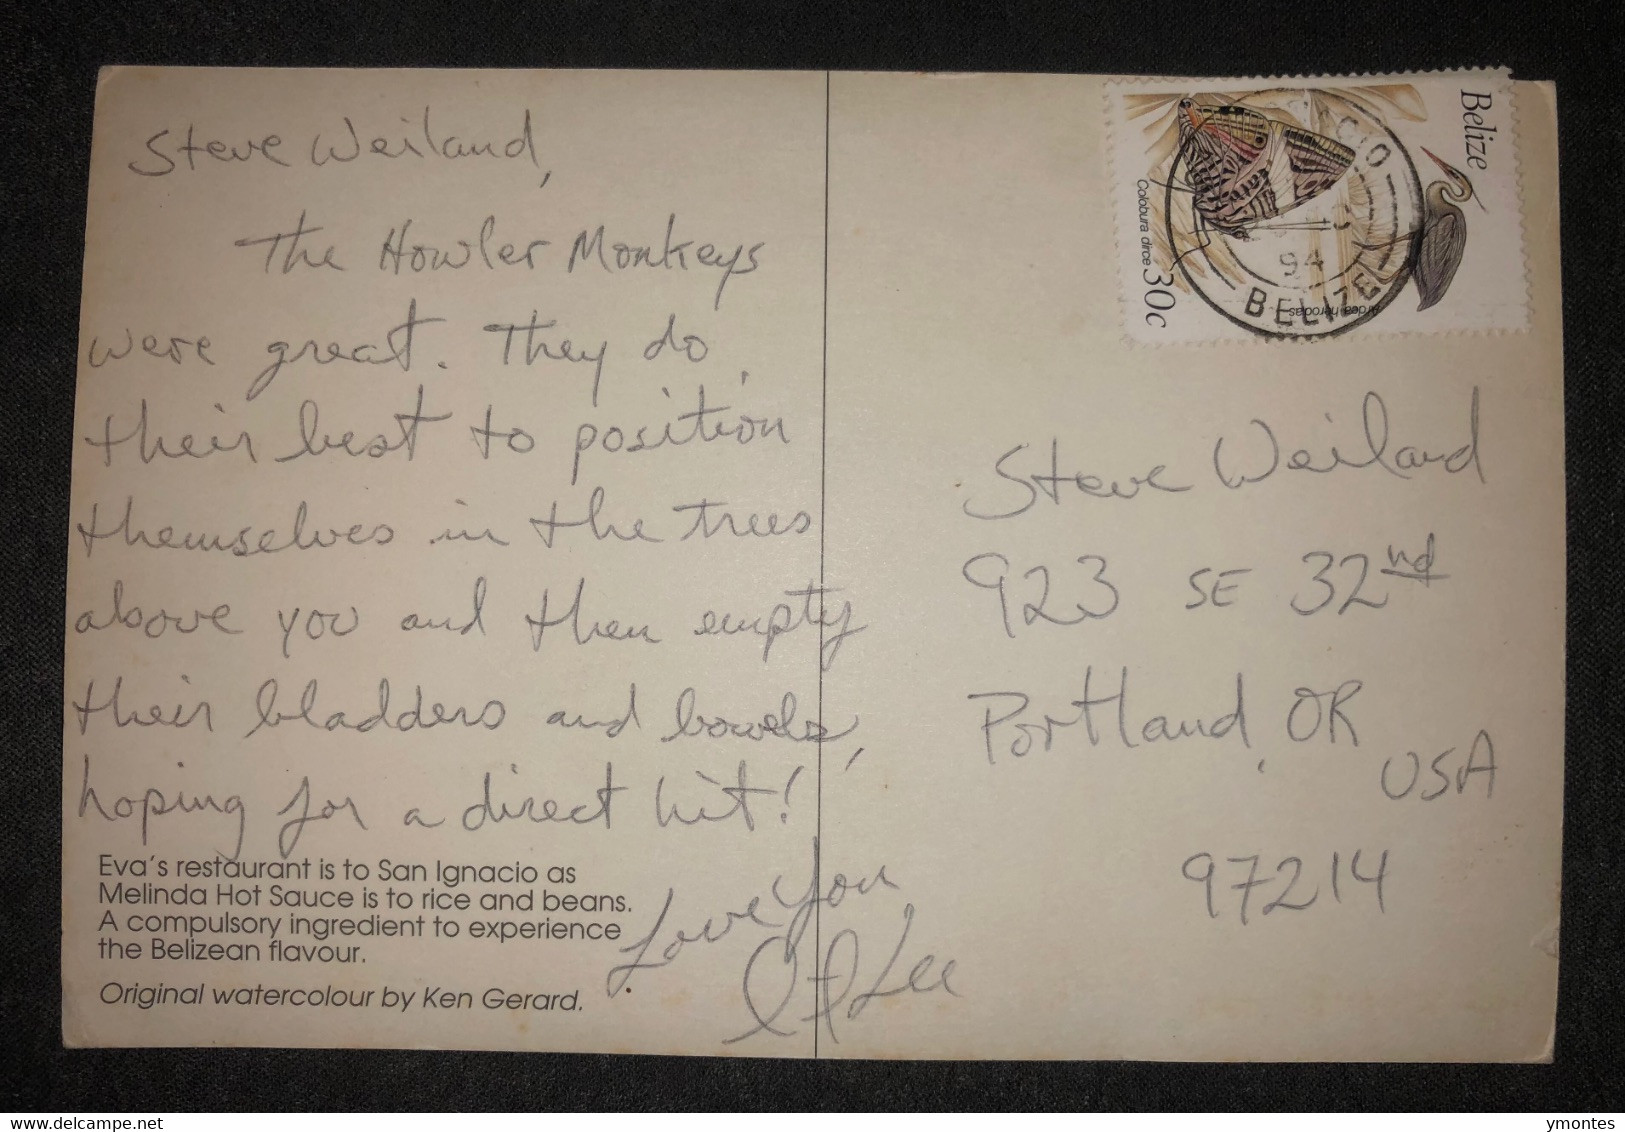 Steve Weiland,
The Howler Monkeys
were great. They do
their best to position
themselves in the trees
above you and then empty
their bladders and bowels,
hoping for a direct hit!
Love You
Lee
Eva's restaurant is to San Ignacio as
Melinda Hot Sauce is to rice and beans.
A compulsory ingredient to experience
the Belizean flavour.
Original watercolour by Ken Gerard.
Belize
Colobura dirce
30c
Ardea herodias
CIO
94
BELIZE
Steve Weiland
923 SE 32nd
Portland, OR
USA
97214
www.delcampe.net
ymontes